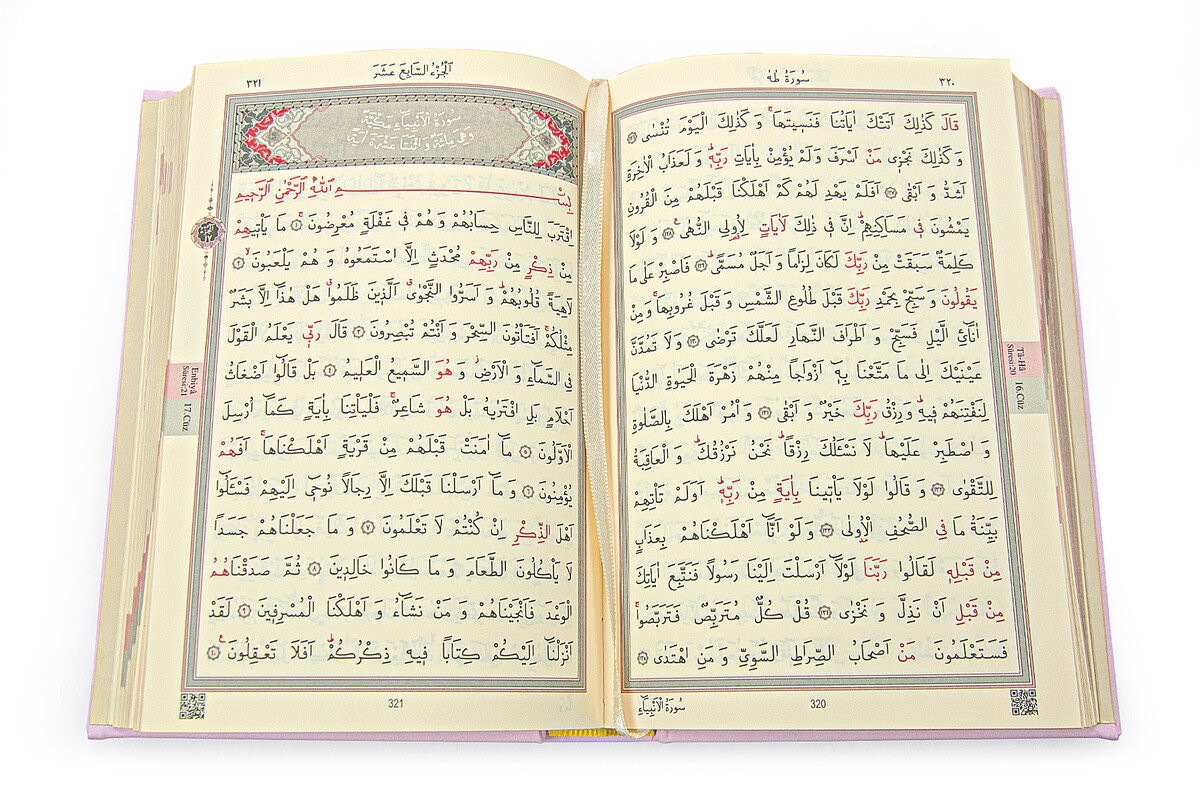 ٣٢٠
سُورَةُ طٰهٰ
قَالَ كَذٰلِكَ اَتَتْكَ اٰيَاتُنَا فَنَس۪يتَهَاۚ وَكَذٰلِكَ الْيَوْمَ تُنْسٰى ﴿١٢٦﴾
وَكَذٰلِكَ نَجْز۪ي مَنْ اَسْرَفَ وَلَمْ يُؤْمِنْ بِاٰيَاتِ رَبِّه۪ۜ وَلَعَذَابُ الْاٰخِرَةِ
اَشَدُّ وَاَبْقٰى ﴿١٢٧﴾ اَفَلَمْ يَهْدِ لَهُمْ كَمْ اَهْلَكْنَا قَبْلَهُمْ مِنَ الْقُرُونِ
يَمْشُونَ ف۪ي مَسَاكِنِهِمْۜ اِنَّ ف۪ي ذٰلِكَ لَاٰيَاتٍ لِاُو۬لِي النُّهٰى۟ ﴿١٢٨﴾ وَلَوْلَا
كَلِمَةٌ سَبَقَتْ مِنْ رَبِّكَ لَكَانَ لِزَامًا وَاَجَلٌ مُسَمًّىۜ ﴿١٢٩﴾ فَاصْبِرْ عَلٰى مَا
يَقُولُونَ وَسَبِّحْ بِحَمْدِ رَبِّكَ قَبْلَ طُلُوعِ الشَّمْسِ وَقَبْلَ غُرُوبِهَاۚ وَمِنْ
اٰنَٓائِ الَّيْلِ فَسَبِّحْ وَاَطْرَافَ النَّهَارِ لَعَلَّكَ تَرْضٰى ﴿١٣٠﴾ وَلَا تَمُدَّنَّ
عَيْنَيْكَ اِلٰى مَا مَتَّعْنَا بِه۪ٓ اَزْوَاجًا مِنْهُمْ زَهْرَةَ الْحَيٰوةِ الدُّنْيَا
لِنَفْتِنَهُمْ ف۪يهِۜ وَرِزْقُ رَبِّكَ خَيْرٌ وَاَبْقٰى ﴿١٣١﴾ وَأْمُرْ اَهْلَكَ بِالصَّلٰوةِ
وَاصْطَبِرْ عَلَيْهَاۜ لَا نَسْـَٔلُكَ رِزْقًاۜ نَحْنُ نَرْزُقُكَۜ وَالْعَاقِبَةُ
لِلتَّقْوٰى ﴿١٣٢﴾ وَقَالُوا لَوْلَا يَأْت۪ينَا بِاٰيَةٍ مِنْ رَبِّه۪ۜ اَوَلَمْ تَأْتِهِمْ
بَيِّنَةُ مَا فِي الصُّحُفِ الْاُو۫لٰى ﴿١٣٣﴾ وَلَوْ اَنَّٓا اَهْلَكْنَاهُمْ بِعَذَابٍ
مِنْ قَبْلِه۪ لَقَالُوا رَبَّنَا لَوْلَٓا اَرْسَلْتَ اِلَيْنَا رَسُولًا فَنَتَّبِعَ اٰيَاتِكَ
مِنْ قَبْلِ اَنْ نَذِلَّ وَنَخْزٰى ﴿١٣٤﴾ قُلْ كُلٌّ مُتَرَبِّصٌ فَتَرَبَّصُواۚ
فَسَتَعْلَمُونَ مَنْ اَصْحَابُ الصِّرَاطِ السَّوِيِّ وَمَنِ اهْتَدٰى ﴿١٣٥﴾
Tâ-Hâ
Sûresi:20
16.Cüz
320
سُورَةُ الْاَنْبِيَٓاءِ
اَلْجُزْءُ السَّابِعَ عَشَرَ
٣٢١
سُورَةُ الْاَنْبِيَاءِ مَكِّيَّةٌ
وَهِيَ مِائَةٌ وَاثْنَتَا عَشْرَةَ اٰيَةً
بِسْمِ اللّٰهِ الرَّحْمٰنِ الرَّح۪يمِ
اِقْتَرَبَ لِلنَّاسِ حِسَابُهُمْ وَهُمْ ف۪ي غَفْلَةٍ مُعْرِضُونَۚ ﴿١﴾ مَا يَأْت۪يهِمْ
مِنْ ذِكْرٍ مِنْ رَبِّهِمْ مُحْدَثٍ اِلَّا اسْتَمَعُوهُ وَهُمْ يَلْعَبُونَۙ ﴿٢﴾
لَاهِيَةً قُلُوبُهُمْۜ وَاَسَرُّوا النَّجْوٰىۗ اَلَّذ۪ينَ ظَلَمُواۗ هَلْ هٰذَٓا اِلَّا بَشَرٌ
مِثْلُكُمْۚ اَفَتَأْتُونَ السِّحْرَ وَاَنْتُمْ تُبْصِرُونَ ﴿٣﴾ قَالَ رَبّ۪ي يَعْلَمُ الْقَوْلَ
فِي السَّمَٓاءِ وَالْاَرْضِۘ وَهُوَ السَّم۪يعُ الْعَل۪يمُ ﴿٤﴾ بَلْ قَالُٓوا اَضْغَاثُ
اَحْلَامٍ بَلِ افْتَرٰيهُ بَلْ هُوَ شَاعِرٌۚ فَلْيَأْتِنَا بِاٰيَةٍ كَمَٓا اُرْسِلَ
الْاَوَّلُونَ ﴿٥﴾ مَٓا اٰمَنَتْ قَبْلَهُمْ مِنْ قَرْيَةٍ اَهْلَكْنَاهَاۚ اَفَهُمْ
يُؤْمِنُونَ ﴿٦﴾ وَمَٓا اَرْسَلْنَا قَبْلَكَ اِلَّا رِجَالًا نُوح۪ٓي اِلَيْهِمْ فَسْـَٔلُٓوا
اَهْلَ الذِّكْرِ اِنْ كُنْتُمْ لَا تَعْلَمُونَ ﴿٧﴾ وَمَا جَعَلْنَاهُمْ جَسَدًا
لَا يَأْكُلُونَ الطَّعَامَ وَمَا كَانُوا خَالِد۪ينَ ﴿٨﴾ ثُمَّ صَدَقْنَاهُمُ
الْوَعْدَ فَاَنْجَيْنَاهُمْ وَمَنْ نَشَٓاءُ وَاَهْلَكْنَا الْمُسْرِف۪ينَ ﴿٩﴾ لَقَدْ
اَنْزَلْنَٓا اِلَيْكُمْ كِتَابًا ف۪يهِ ذِكْرُكُمْۜ اَفَلَا تَعْقِلُونَ۟ ﴿١٠﴾
Enbiyâ
Sûresi:21
17.Cüz
321